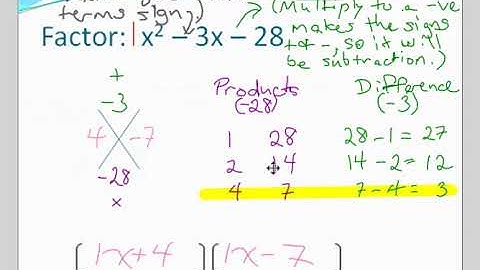 terms sign.)
(Multiply to a -ve
makes the signs
tot -, so it will
be subtraction.)
Factor: 1x² – 3x – 28
+
-3
4 -7
-28
x
Products Difference
(-28) (-3)
1 28 28 - 1 = 27
2 14 14 - 2 = 12
4 7 7 - 4 = 3
(1x+4)(1x-7)